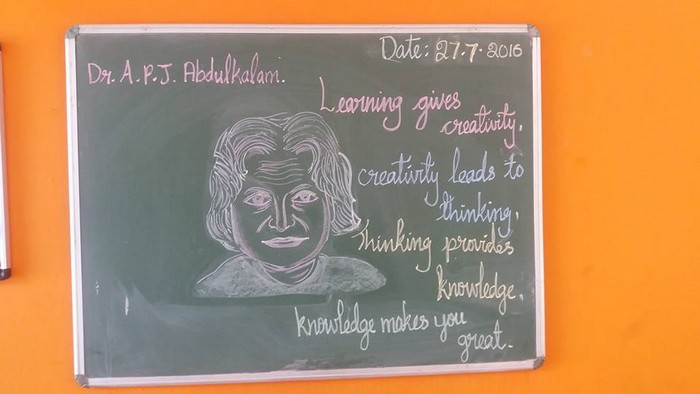 Date: 27.7.2016
Dr. A.P.J. Abdulkalam.
Learning gives
creativity.
creativity leads to
thinking.
Thinking provides
knowledge.
knowledge makes you
great.